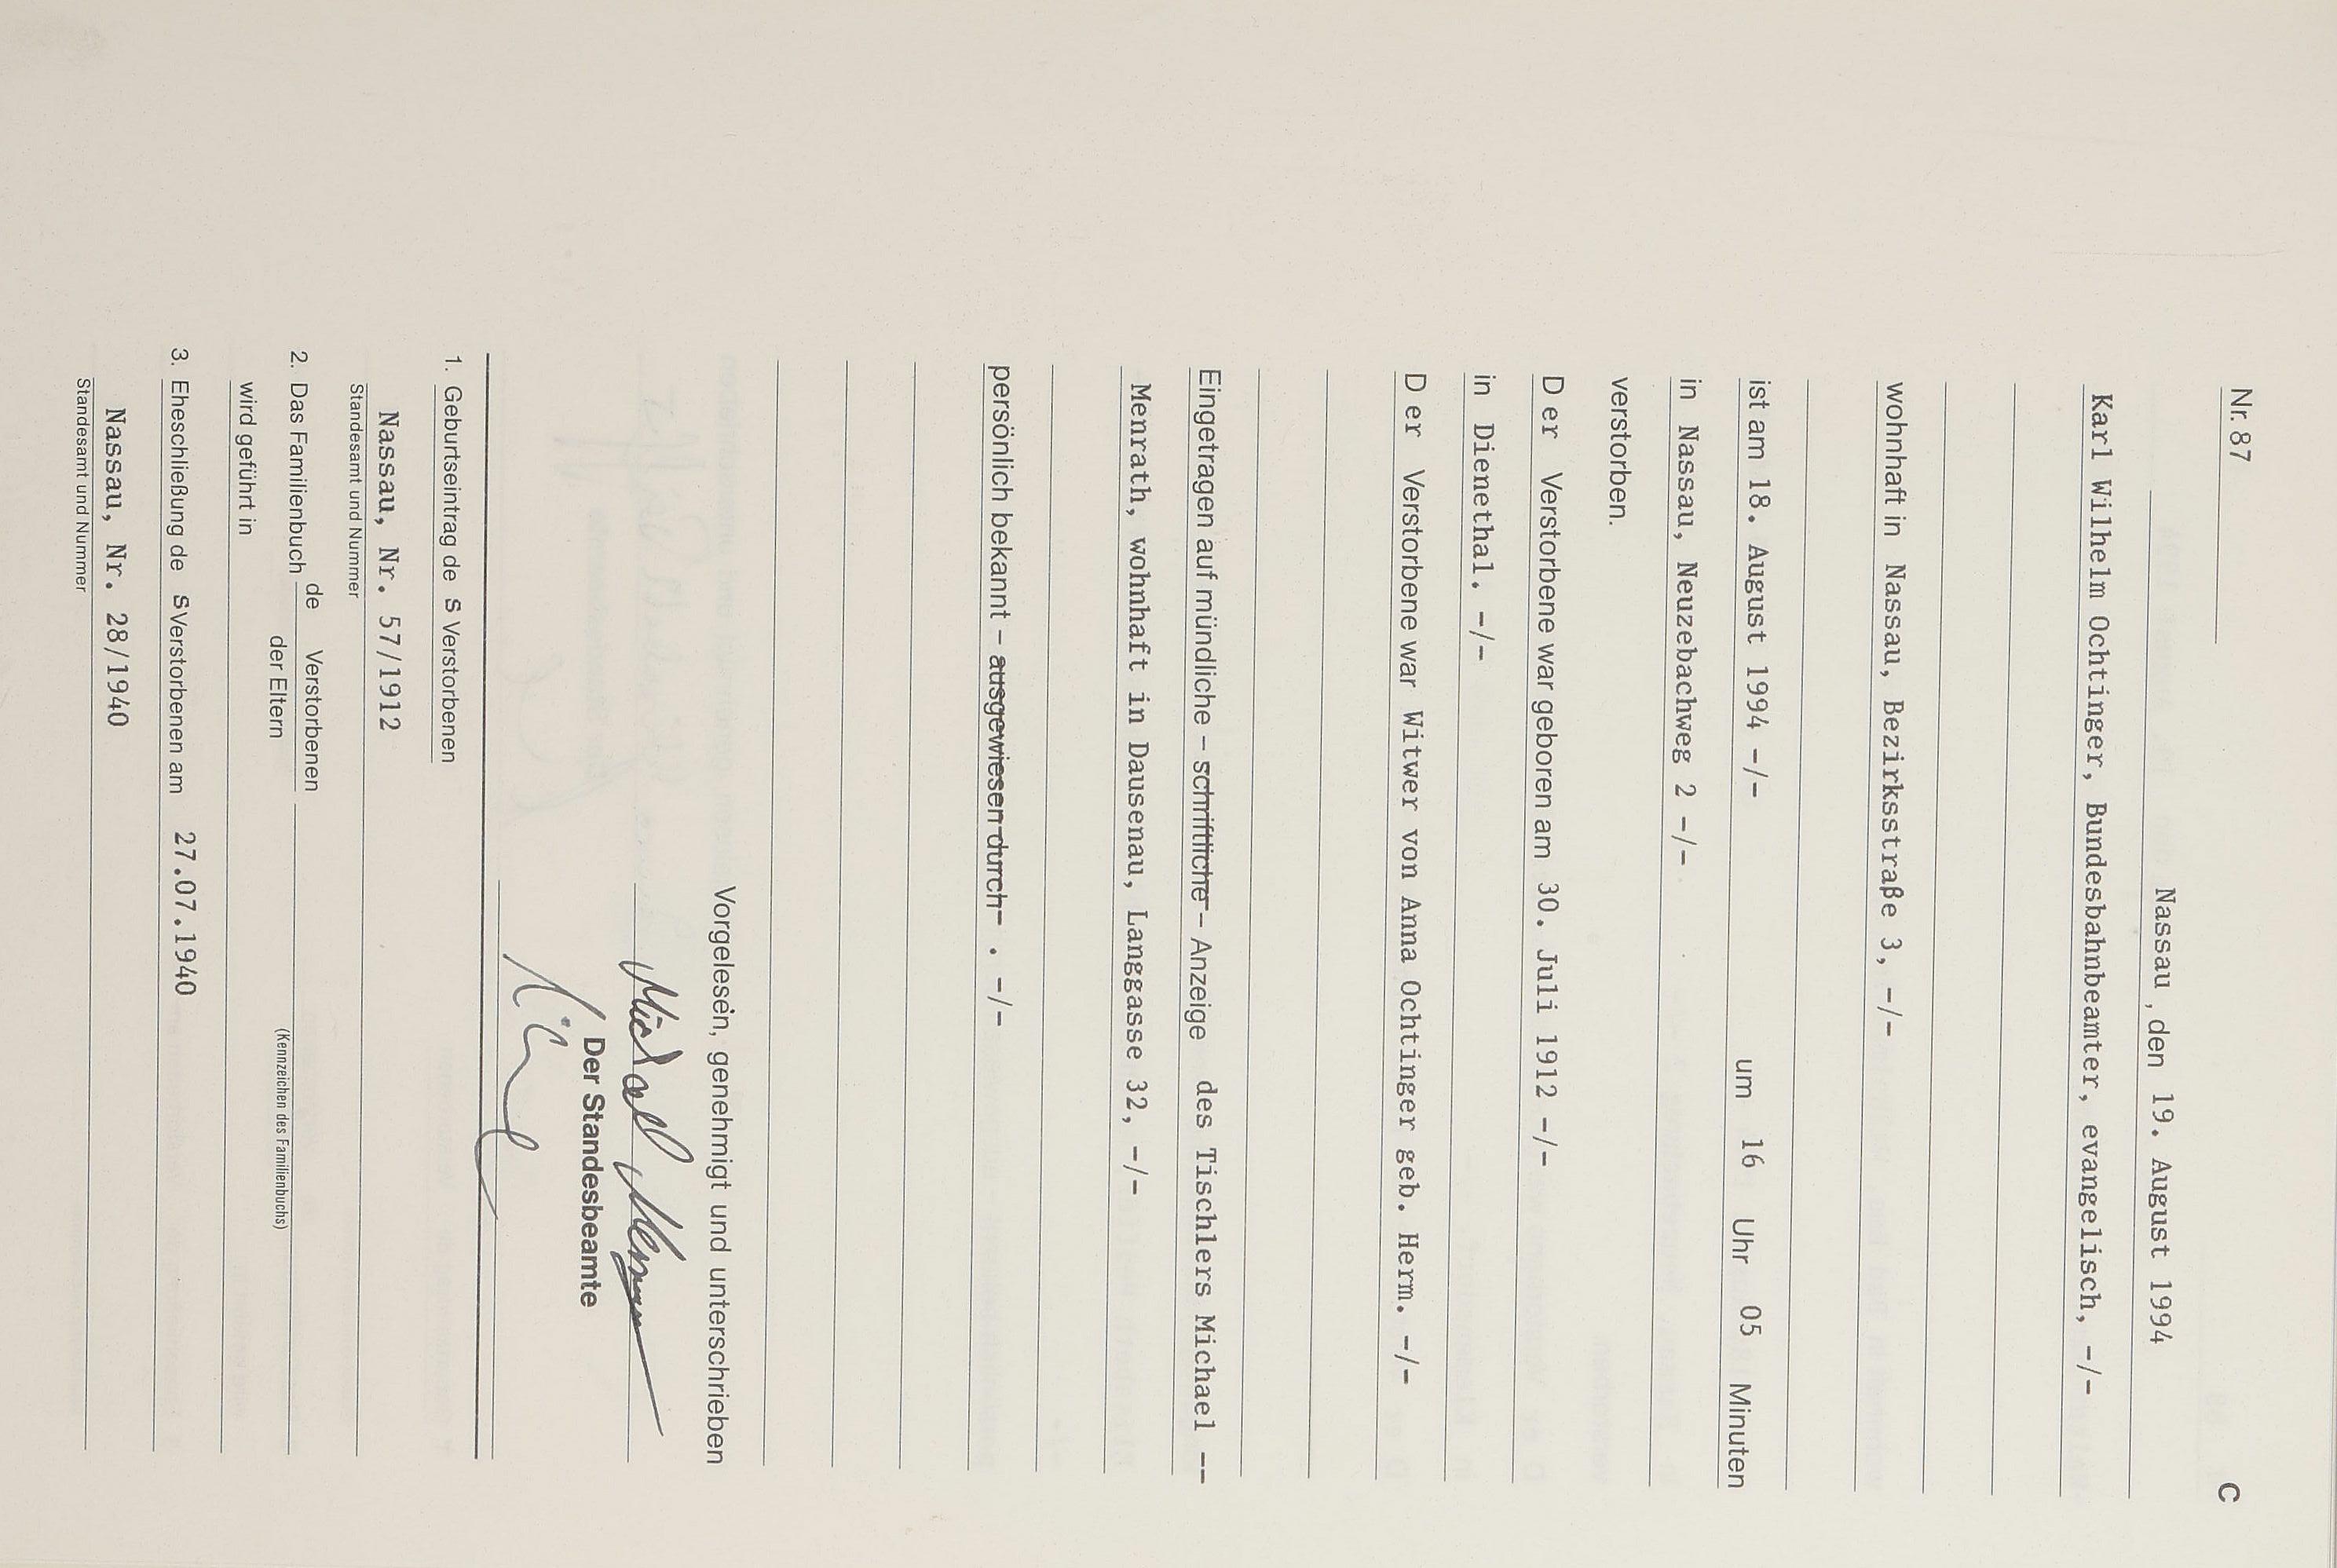 Nr. 87
C
Nassau, den 19. August 1994
Karl Wilhelm Ochtinger, Bundesbahnbeamter, evangelisch, -/-
wohnhaft in Nassau, Bezirksstraße 3, -/-
ist am 18. August 1994 -/- um 16 Uhr 05 Minuten
in Nassau, Neuzebachweg 2 -/-
verstorben.
D er Verstorbene war geboren am 30. Juli 1912 -/-
in Dienethal. -/-
D er Verstorbene war Witwer von Anna Ochtinger geb. Herm. -/-
Eingetragen auf mündliche – schriftliche – Anzeige des Tischlers Michael --
Menrath, wohnhaft in Dausenau, Langgasse 32, -/-
persönlich bekannt – ausgewiesen durch . -/-
Vorgelesen, genehmigt und unterschrieben
Michael
Der Standesbeamte
1. Geburtseintrag de s Verstorbenen
Nassau, Nr. 57/1912
Standesamt und Nummer
2. Das Familienbuch de Verstorbenen
der Eltern
(Kennzeichen des Familienbuchs)
wird geführt in
3. Eheschließung de s Verstorbenen am 27.07.1940
Nassau, Nr. 28/1940
Standesamt und Nummer